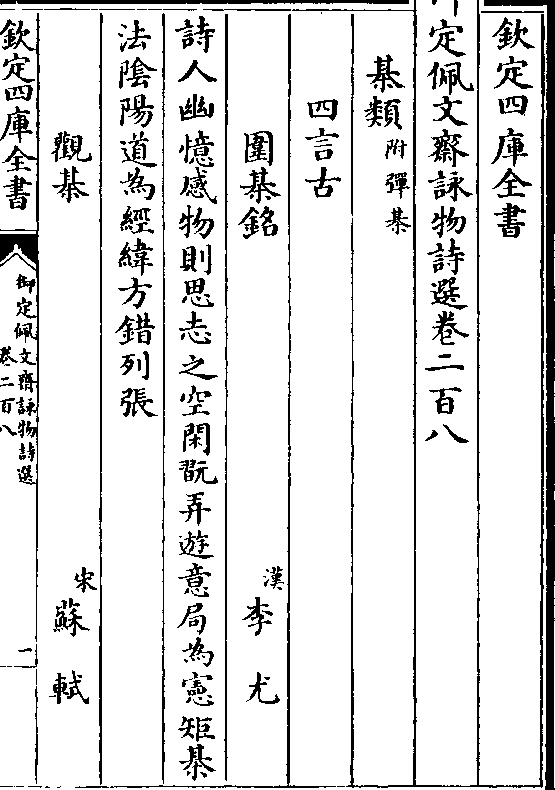 欽定四庫全書
御定佩文齋詠物詩選卷二百八
棊類附彈棊
四言古
圍棊銘 漢李尤
詩人幽憶感物則思志之空閑翫弄遊意局為憲矩棊
法陰陽道為經緯方錯列張
觀棊 宋蘇軾
欽定四庫全書
御定佩文齋詠物詩選
卷二百八
一